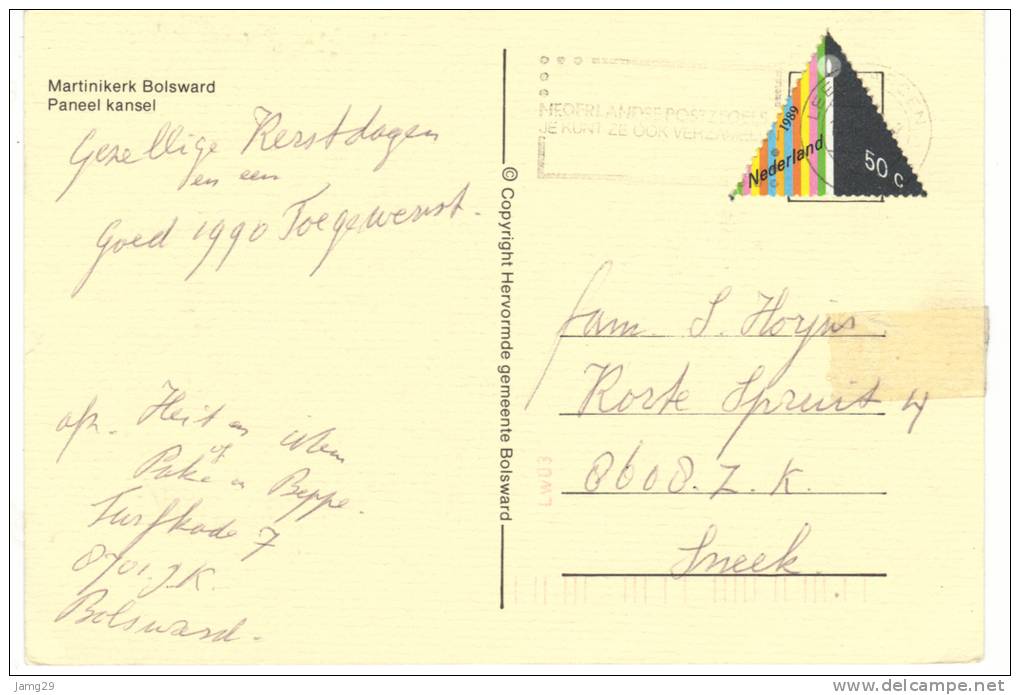 Martinikerk Bolsward
Paneel kansel
Gezellige Kerstdagen
en een
Goed 1990 Toegewenst.
afz. Heit en Mem
of
Pake en Beppe.
Turfkade 7
8701.J.K.
Bolsward.
© Copyright Hervormde gemeente Bolsward
NEDERLANDSE POSTZEGELS
JE KUNT ZE OOK VERZAMELEN
1989
Nederland
50 c
fam. S.
Korte Spruit 4
8608.Z.K.
Sneek.
Jamg29
delcampe.net